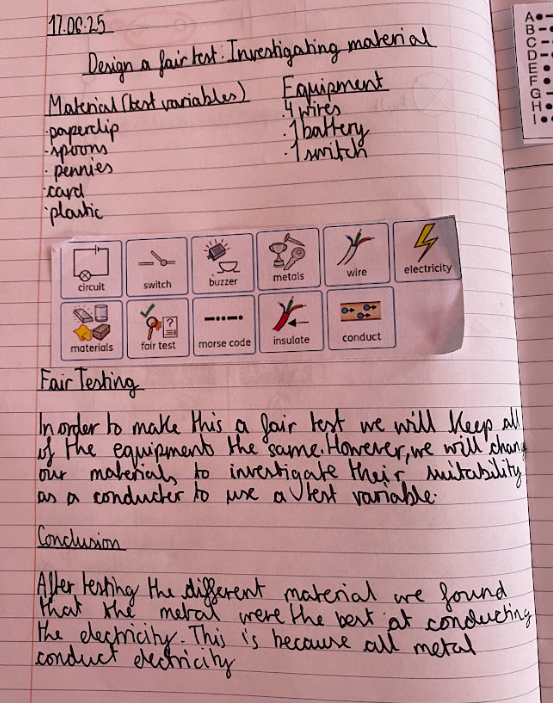 17.06.25
Design a fair test: Investigating material
Material (test variables)
·paperclip
·spoons
·pennies
·card
·plastic
Equipment
·4 wires
·1 battery
·1 switch
circuit
switch
buzzer
metals
wire
electricity
materials
fair test
morse code
insulate
conduct
Fair Testing
In order to make this a fair test we will keep all
of the equipment the same. However, we will chang
our materials to investigate their suitability
as a conducter to use a test variable.
Conclusion
After testing the different material we found
that the metal were the best at conducting
the electricity. This is because all metal
conduct electricity
A
B
C
D
E
F
G
H
I